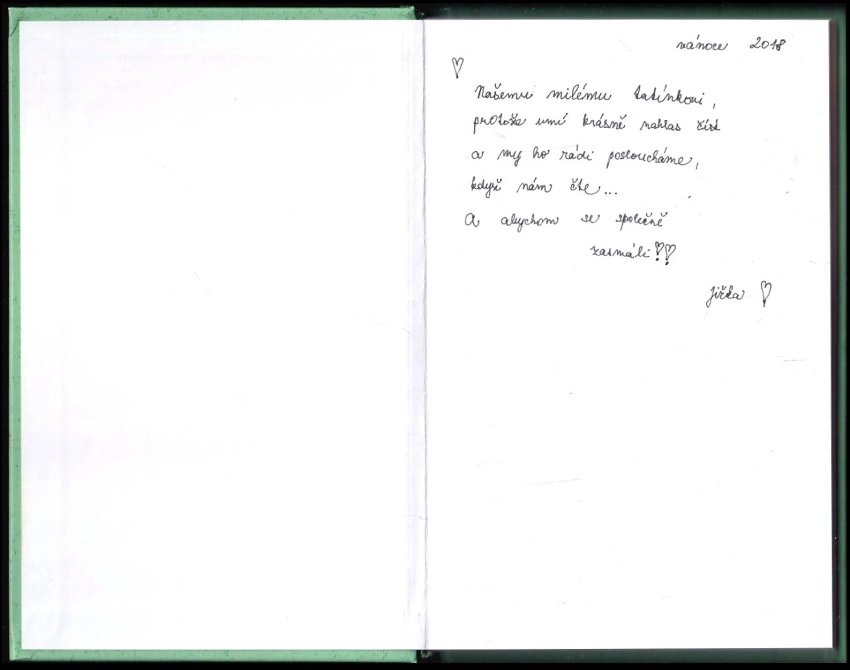 vánoce 2018
Našemu milému tatínkovi,
protože umí krásně nahlas číst
a my ho rádi posloucháme,
když nám čte...
A abychom se společně
zasmáli!!
Jiřka